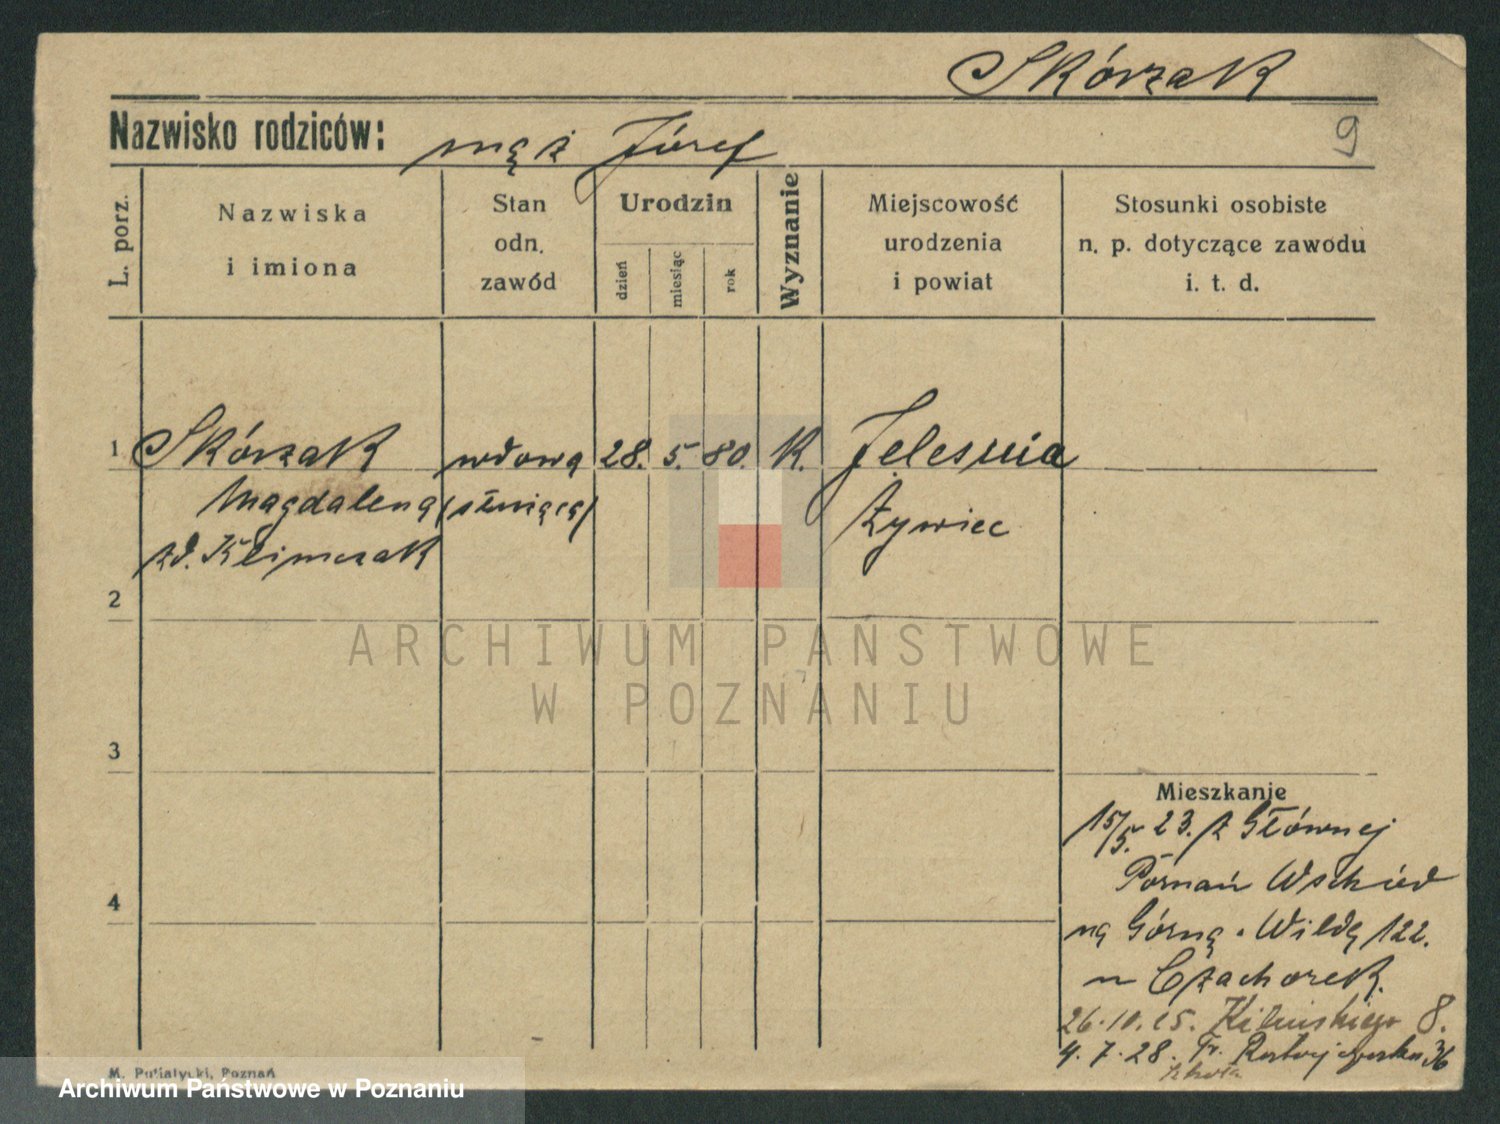 Skórzak
Nazwisko rodziców: mąż Józef
9
L. porz.
Nazwiska
i imiona
Stan
odn.
zawód
Urodzin
dzień
miesiąc
rok
Wyznanie
Miejscowość
urodzenia
i powiat
Stosunki osobiste
n. p. dotyczące zawodu
i. t. d.
1 Skórzak wdowa 28. 5. 80. K. Jelesnia
Magdalena (służąca) Żywiec
zd. Klimczak
2
ARCHIWUM PAŃSTWOWE
W POZNANIU
3
Mieszkanie
15/5. 23. z Głównej
Poznań Wschód
4
na Górną Wildę 122.
u Czachorek.
26.10.25. Kilińskiego 8.
4.7.28. Fr. Ratajczaka 36
M. Putiatycki, Poznań
Archiwum Państwowe w Poznaniu